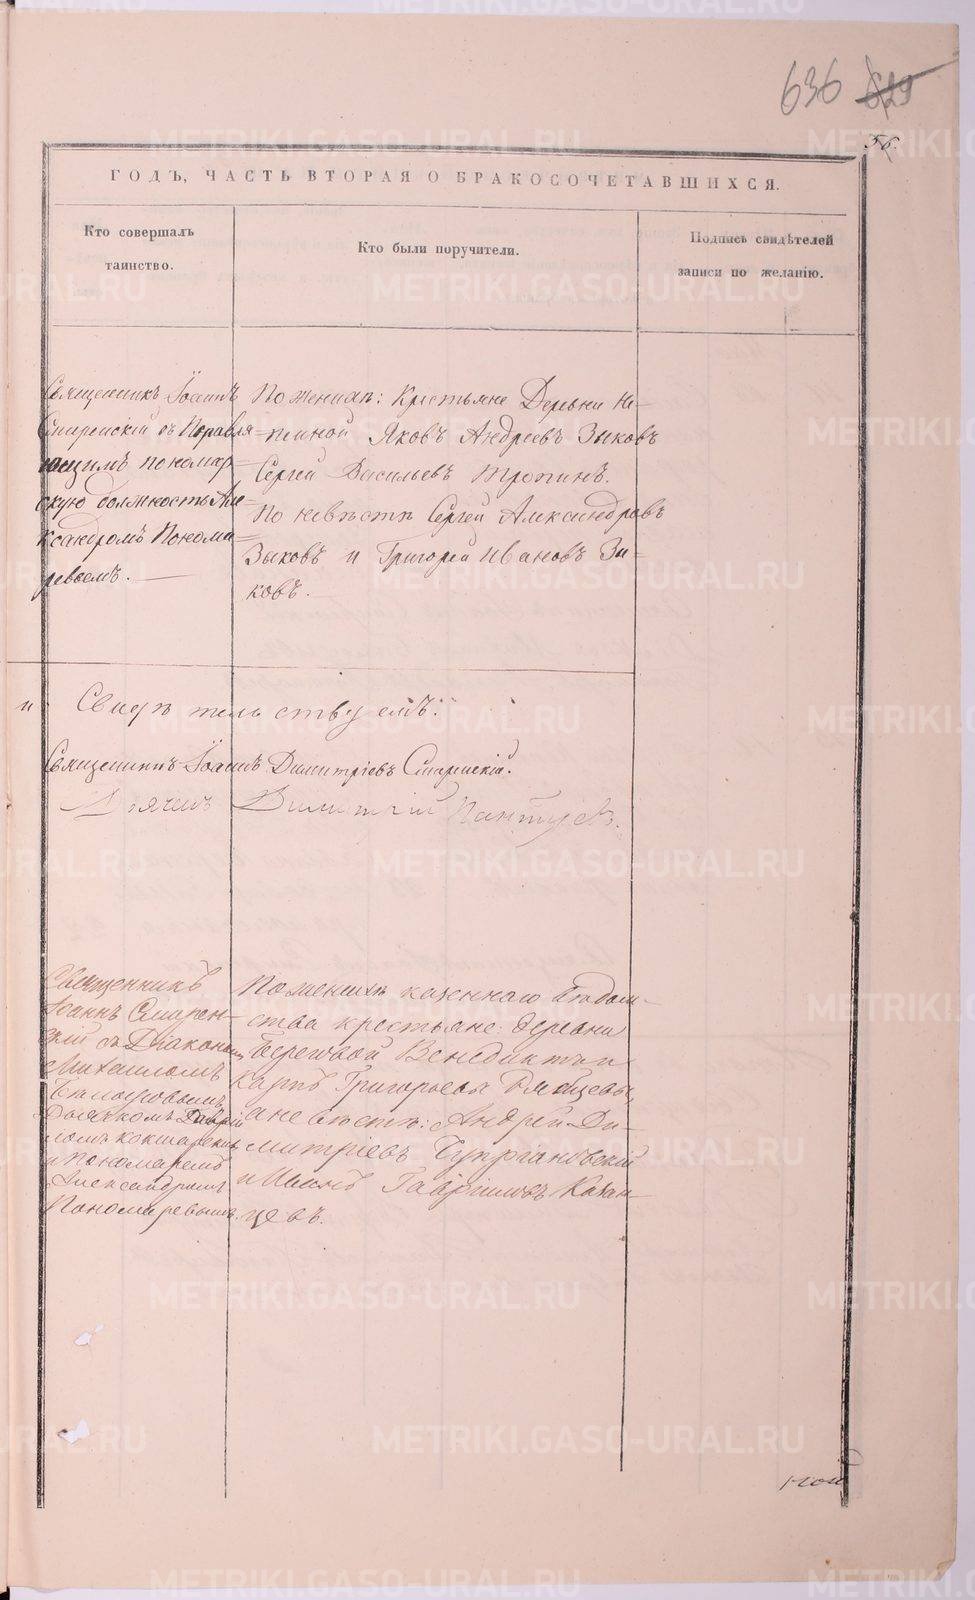 636 629
56
ГОДЪ, ЧАСТЬ ВТОРАЯ О БРАКОСОЧЕТАВШИХСЯ.
Кто совершалъ
таинство.
Кто были поручители.
Подпись свидѣтелей
записи по желанію.
Священникъ Іоаннъ
Смаренскій съ Поправля-
ющимъ пономар-
скую должность Але-
ксандромъ Понома-
ревымъ.
По женихѣ: Крестьяне Деревни
Яковъ Андреевъ Зыковъ
Сергей Васильевъ Тропинъ.
По невѣстѣ Сергей Александровъ
Зыковъ и Григорей Ивановъ Зы-
ковъ.
и Свидѣтельствуемъ:
Священникъ Іоаннъ Димитріевъ Смаренскій.
Дьячекъ Димитрій Пантуевъ.
Священникъ
Іоаннъ Смарен-
скій съ Діакономъ
Михаиломъ
Дьячкомъ Гаврі-
ломъ Кокшаремъ
и Пономаремъ
Александромъ
Пономаревымъ.
По женихѣ казеннаго вѣдом-
ства крестьяне: деревни
Береговой Венедиктъ и
Карпъ Григорьевы
а невѣстѣ: Андрей Ди-
митріевъ
и Иванъ Гавріиловъ Казан-
цевъ.
METRIKI.GASO-URAL.RU